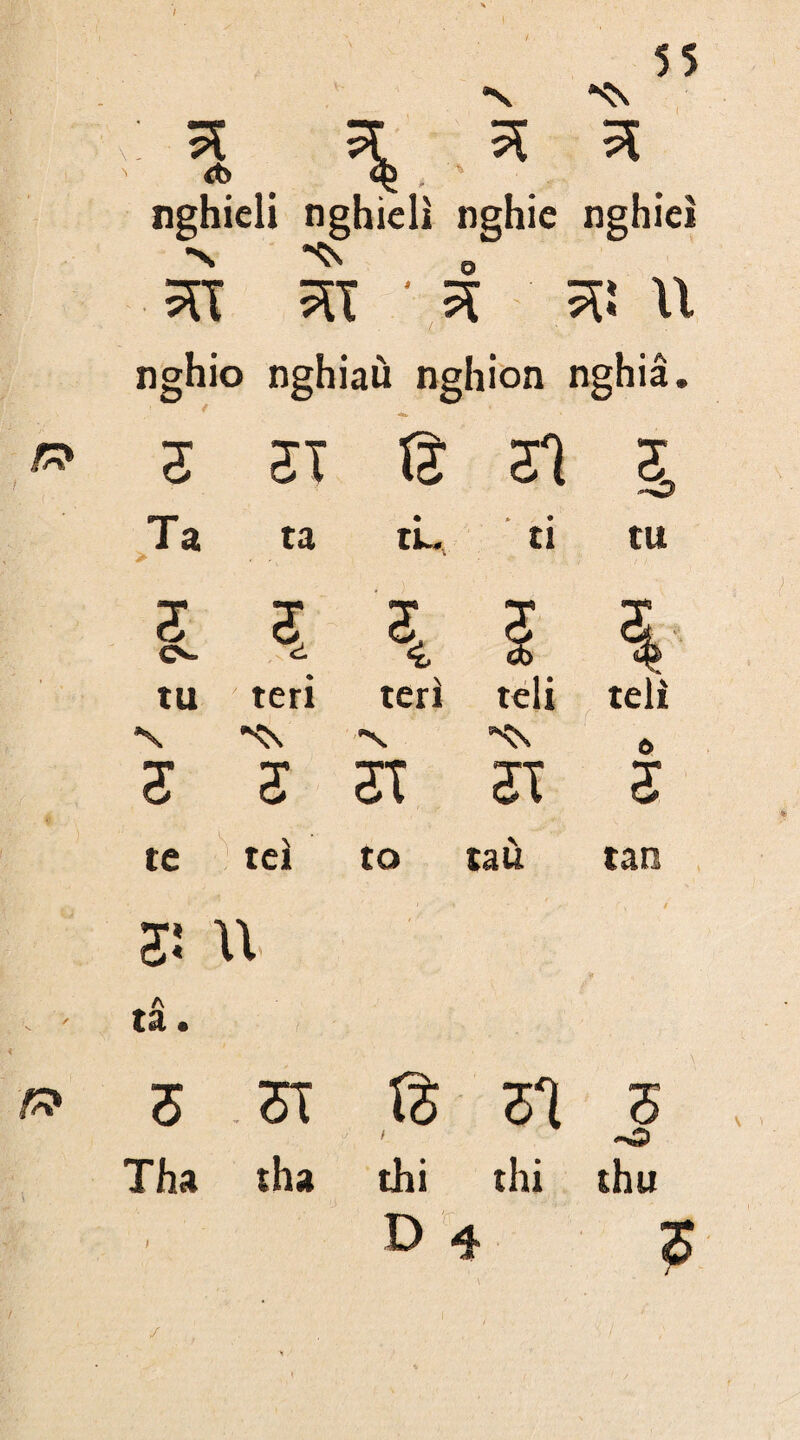 55
ञॢ ञॣ ञे ञै
nghieli nghielì nghie nghieì
ञो ञौ ञं ञः ॥
nghio nghiaù nghion nghiâ.
ट टा टि टी टु
Ta ta ti ti tu
टू टृ टॄ टॢ टॣ
tu teri terì teli telì
टे टै टो टौ टं
te teì to taù tan
टः ॥
tâ.
ठ ठा ठि ठी ठु
Tha tha thi thi thu
D 4 ठू